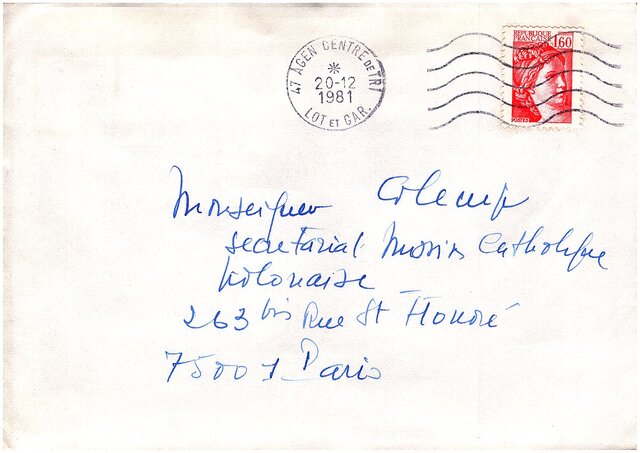 47 AGEN CENTRE DE TRI
20-12
1981
LOT ET GAR.
RÉPUBLIQUE
FRANÇAISE 1,60
POSTES
Monseigneur
secretariat Mission Catholique
Polonaise
263 bis Rue St Honoré
75001 Paris